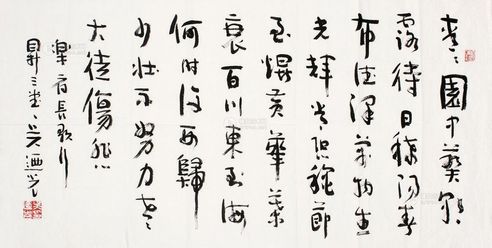 青々園中葵朝
露待日晞陽春
布德澤萬物生
光輝常恐秋節
至焜黃華葉
衰百川東到海
何時復西歸
少壯不努力老
大徒傷悲
樂府長歌行